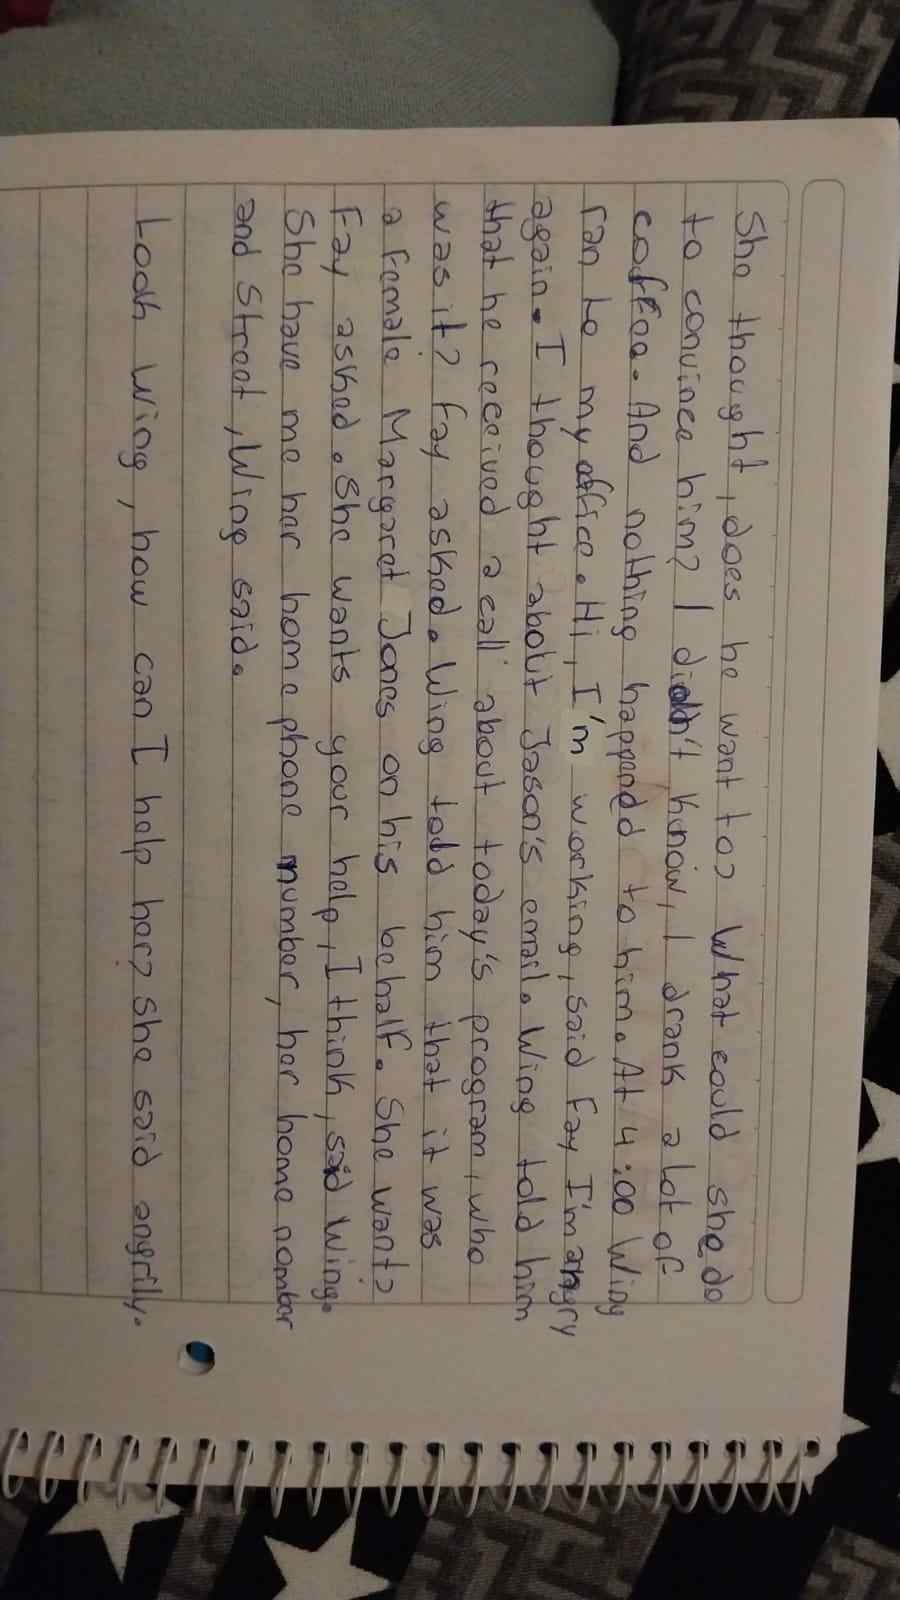 She thought, does he want to? What could she do
to convince him? I didn't know, I drank a lot of
coffee. And nothing happend to him. At 4:00 Wing
ran to my office. Hi, I'm working, said Fay I'm angry
again. I thought about Jason's email. Wing told him
that he received a call about today's program, who
was it? Fay asked. Wing told him that it was
a female Margaret Jones on his behalf. She want?
Fay asked. She wants your help, I think, said Wing.
She have me her home phone number, her home nomber
and Street, Wing said.
Look Wing, how can I help her? She said angrily.